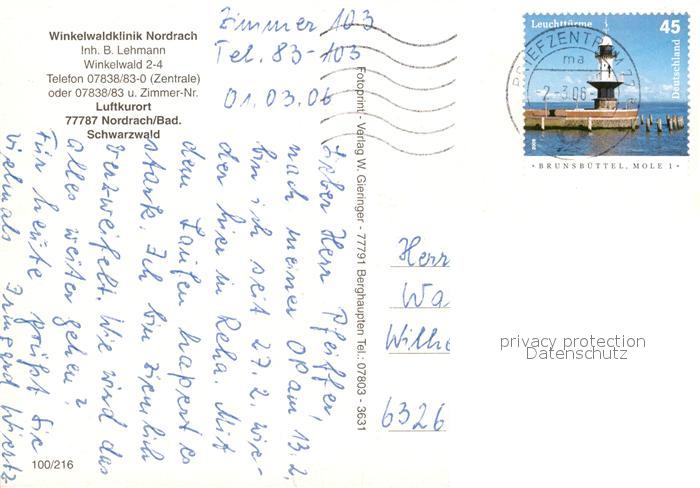 Winkelwaldklinik Nordrach
Inh. B. Lehmann
Winkelwald 2-4
Telefon 07838/83-0 (Zentrale)
oder 07838/83 u. Zimmer-Nr.
Luftkurort
77787 Nordrach/Bad.
Schwarzwald
Zimmer 103
Tel. 83-103
01.03.06
Lieber Herr Pfeiffer,
nach meiner OP am 13.2.
bin ich seit 27.2. wie-
der hier in Reha. Mit
dem Laufen hapert es
stark. Ich bin ziemlich
verzweifelt. Wie wird das
alles weiter gehen?
Für heute grüßt Sie
vielmals Irmgard Wiertz
100/216
Fotoprint - Verlag W. Gieringer - 77791 Berghaupten Tel.: 07803 - 3631
Leuchttürme 45
Deutschland
2005
BRUNSBÜTTEL, MOLE 1
BRIEFZENTRUM 77
ma
2-3.06
Herr
Wa
Wilhe
6326
privacy protection
Datenschutz